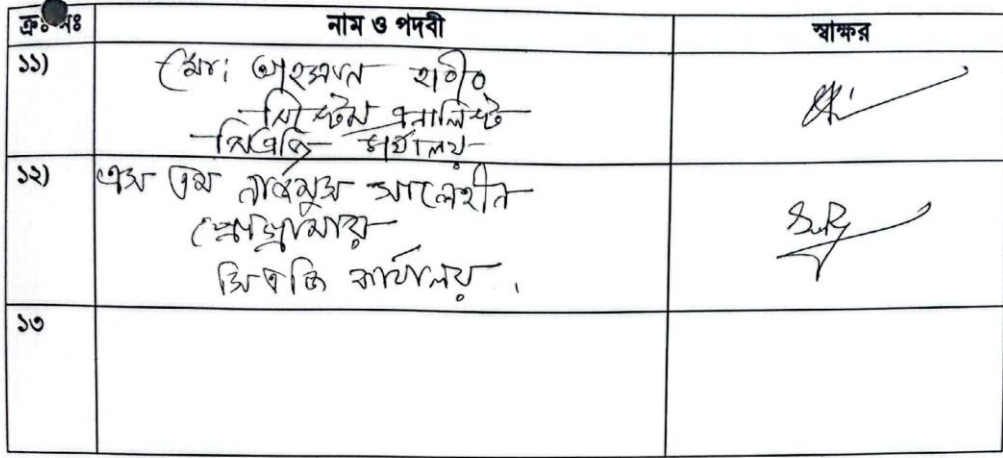 ক্রঃ নঃ নাম ও পদবী স্বাক্ষর
১১) মোঃ আহসান হাবীব
সিস্টেম এনালিস্ট
সিএজি কার্যালয়
১২) এস এম নাজমুস সালেহীন
প্রোগ্রামার
সিএজি কার্যালয়.
১৩